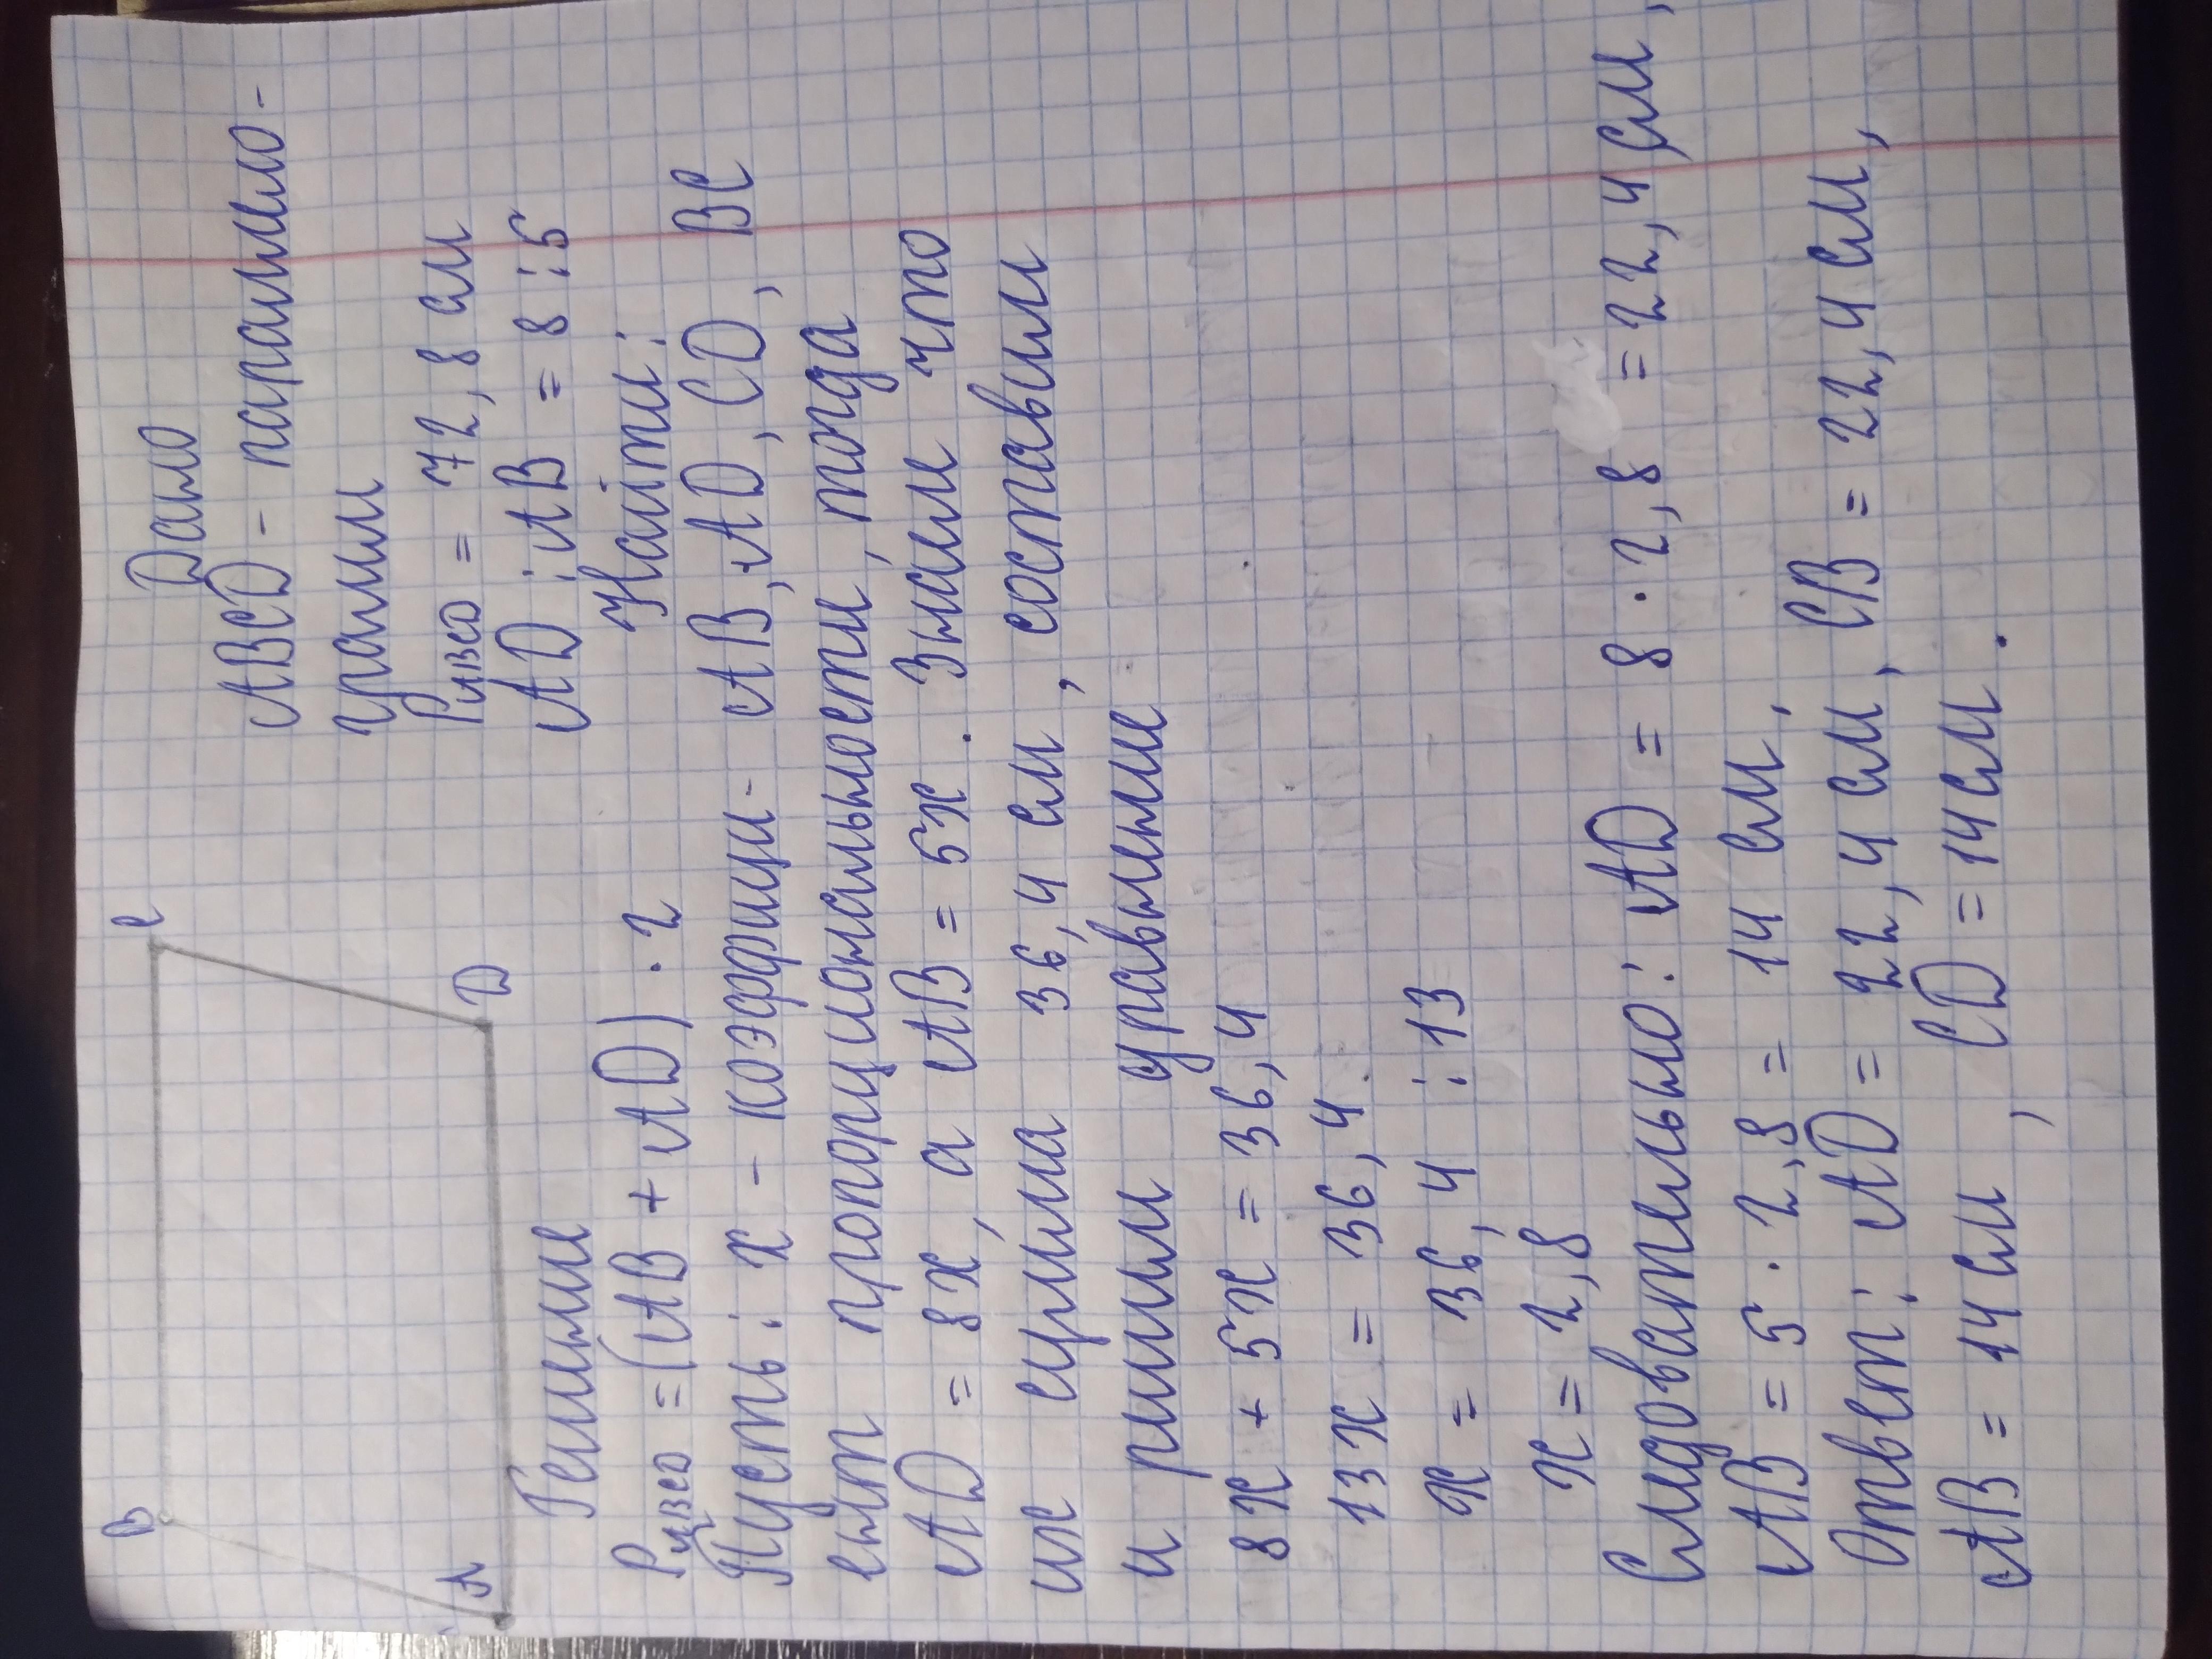 B
C
A
D
Дано
ABCD - параллело-
грамм
P ABCD = 72,8 см
AD : AB = 8 : 5
Найти:
AB, AD, CD, BC
Решение
P ABCD = (AB + AD) · 2
Пусть: x - коэффици-
ент пропорциональности, тогда
AD = 8x, а AB = 5x. Знаем что
их сумма 36,4 см, составим
и решим уравнение
8x + 5x = 36,4
13x = 36,4
x = 36,4 : 13
x = 2,8
Следовательно: AD = 8 · 2,8 = 22,4 см,
AB = 5 · 2,8 = 14 см,
Ответ: AD = 22,4 см, CB = 22,4 см,
AB = 14 см, CD = 14 см.